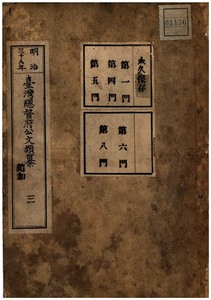 永久保存
第一門
第四門
第五門
第六門
第八門
明治
三十八年
臺灣總督府公文類纂
三
追加